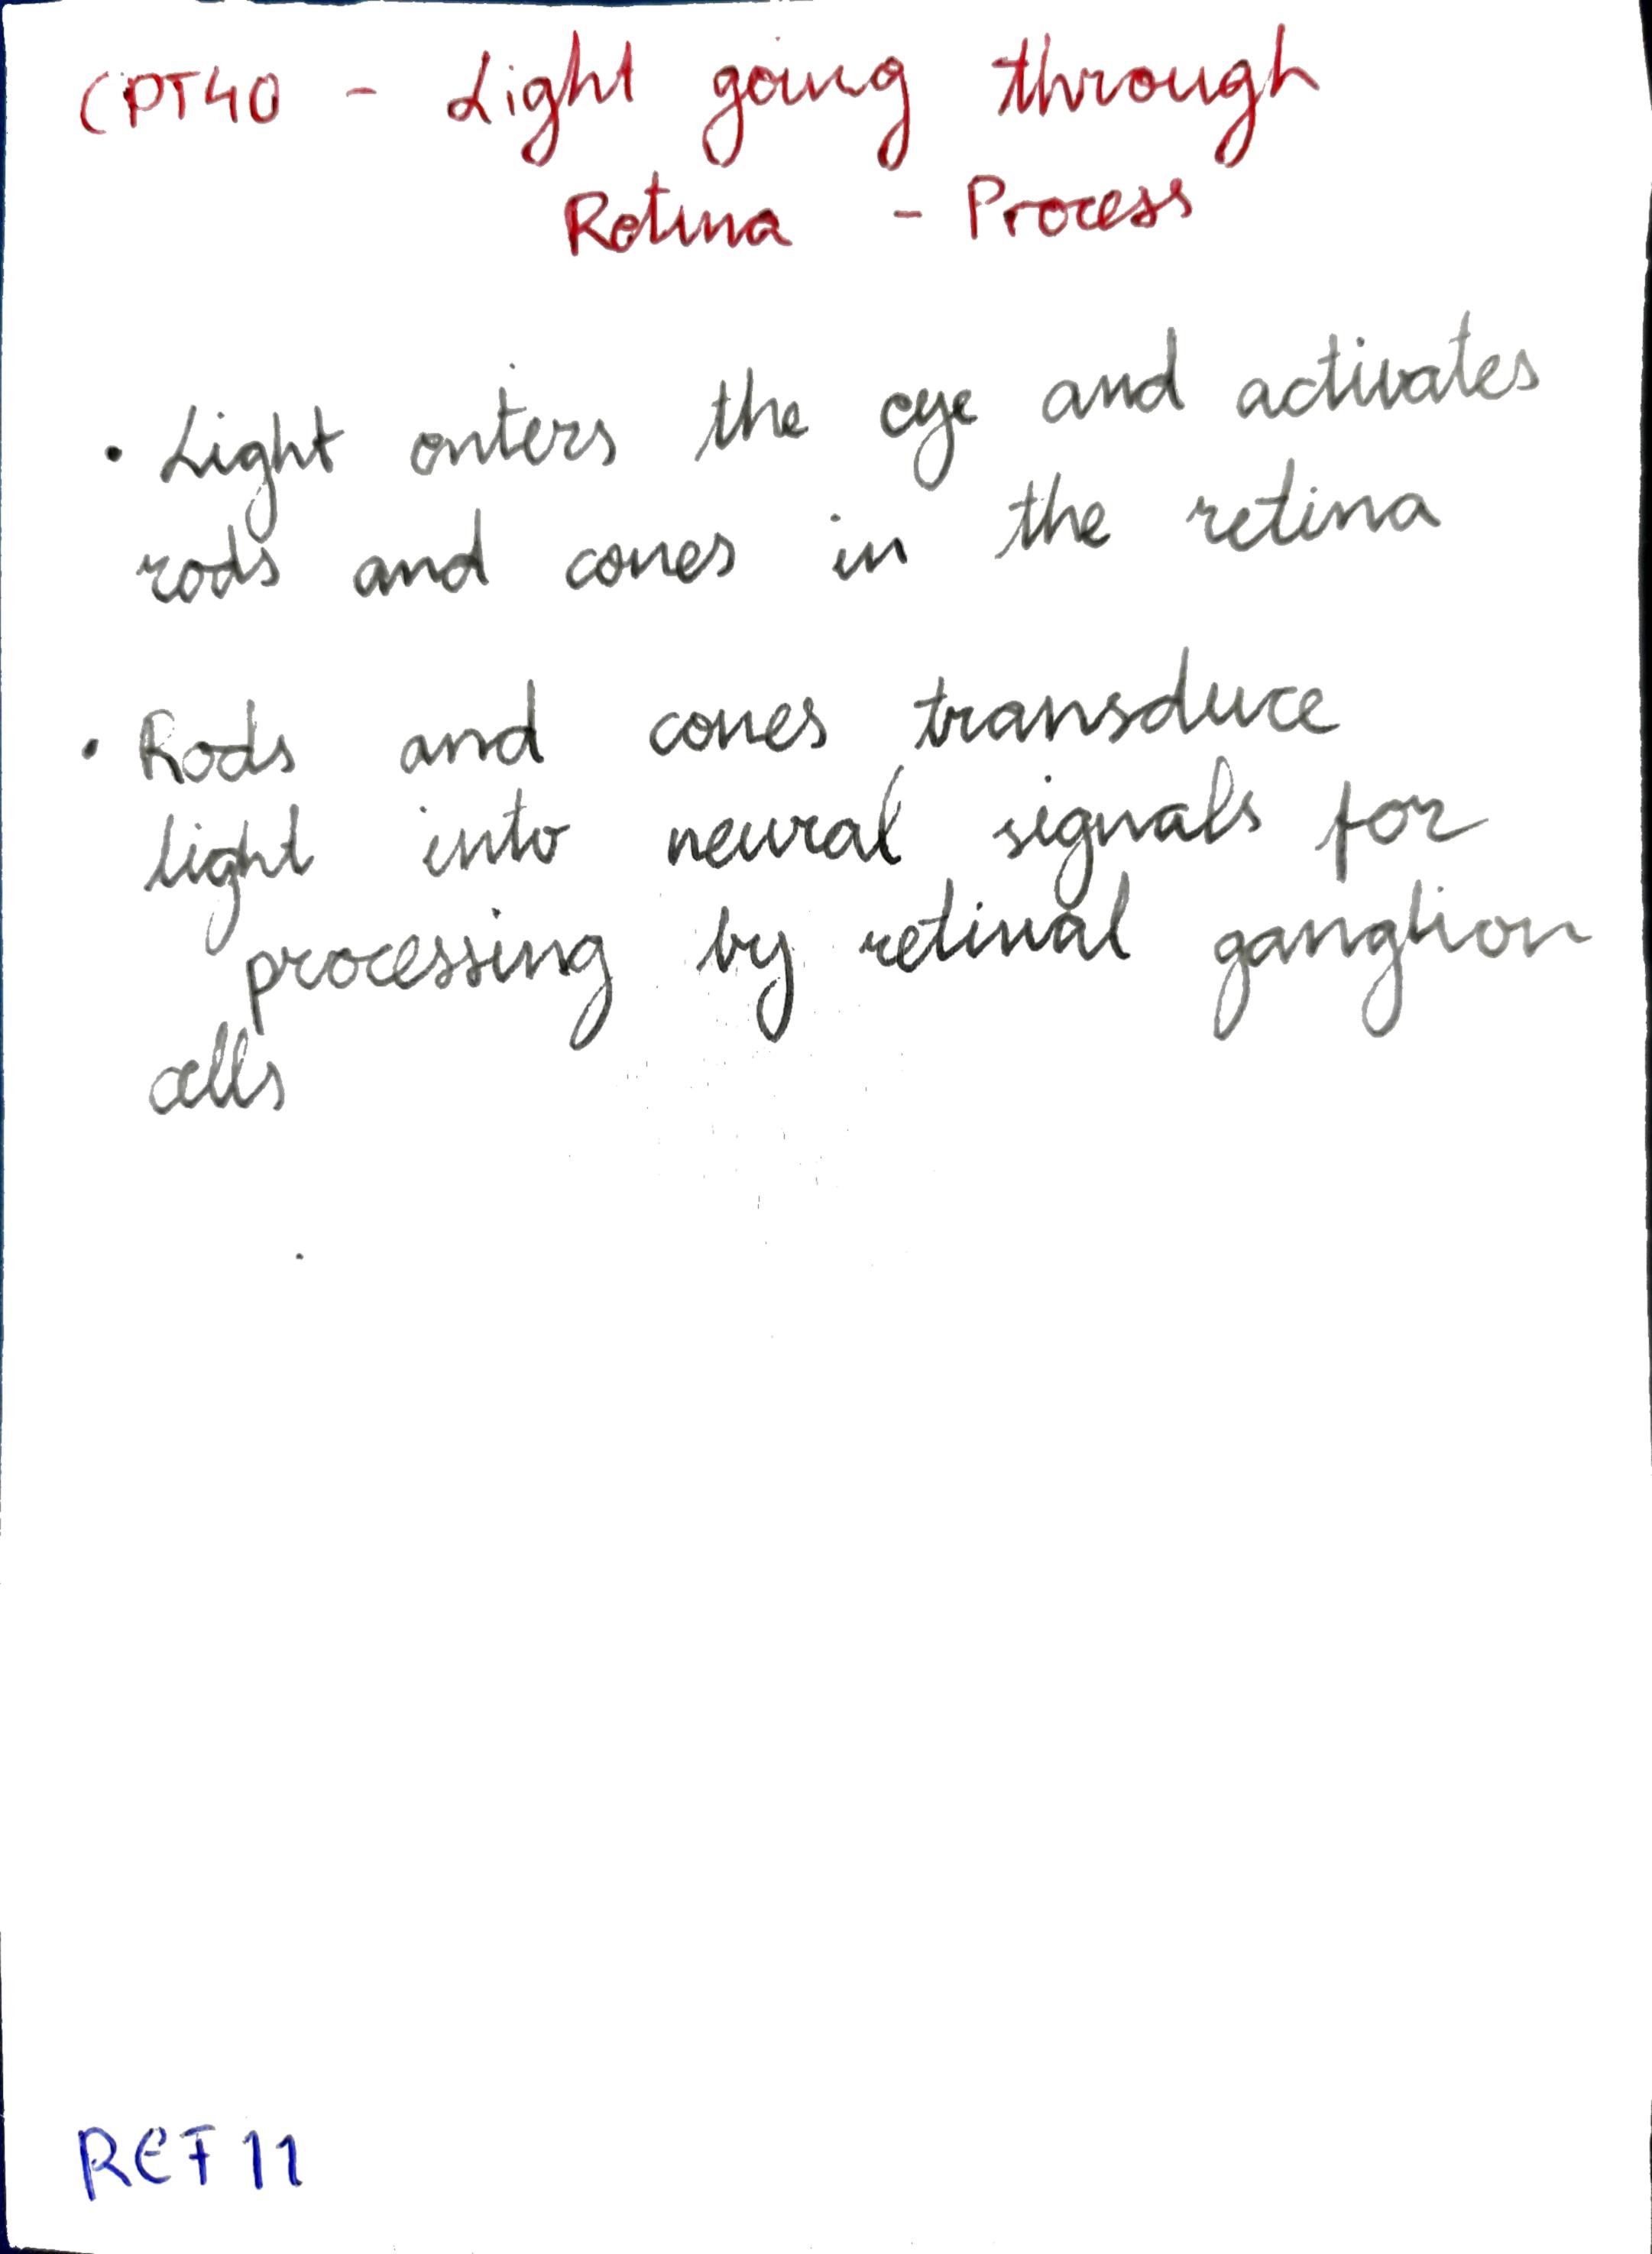 CPT40 - Light going through
Retina - Process
• Light enters the eye and activates
rods and cones in the retina
• Rods and cones transduce
light into neural signals for
processing by retinal ganglion
cells
REF 11